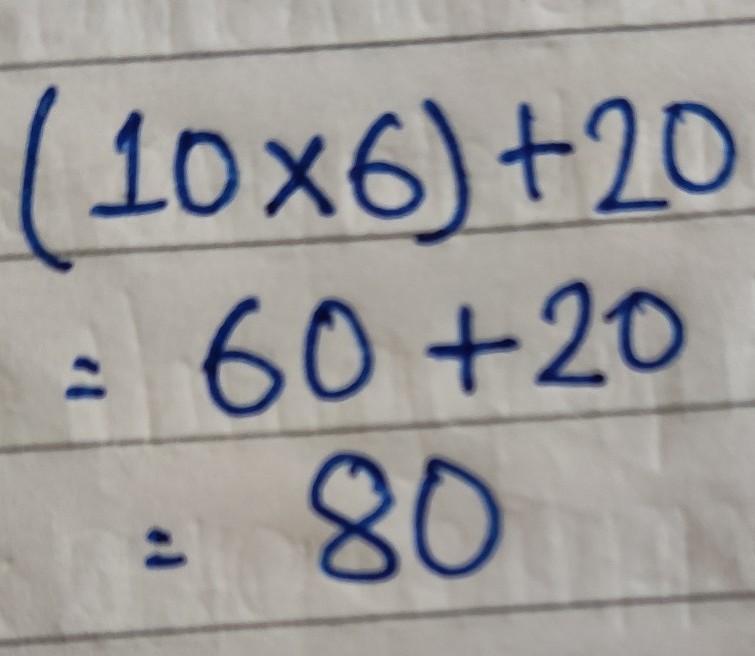 (10×6)+20
= 60+20
= 80